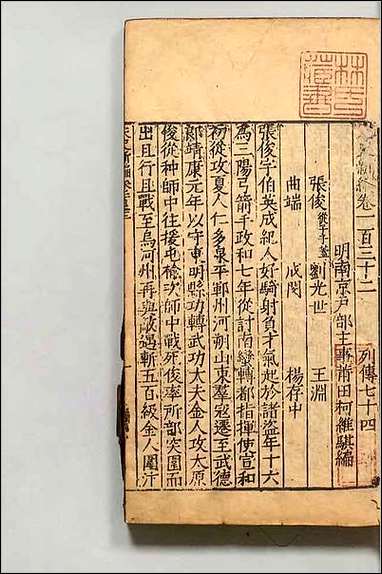 宋史新編卷一百三十二
列傳七十四
明南京戶部主事莆田柯維騏編
張俊 從子子蓋 劉光世 王淵
曲端 成閔 楊存中
張俊字伯英成紀人好騎射負才氣起於諸盜年十六
為三陽弓箭手政和七年從討南蠻轉都指揮使宣和
初從攻夏人仁多泉平鄆州河朔山東羣寇遷至武德
郎靖康元年以守東明縣功轉武功大夫金人攻太原
俊從种師中往援屯榆次師中戰死俊率所部突圍而
出且行且戰至烏河州再與敵遇斬五百級金人圍汴